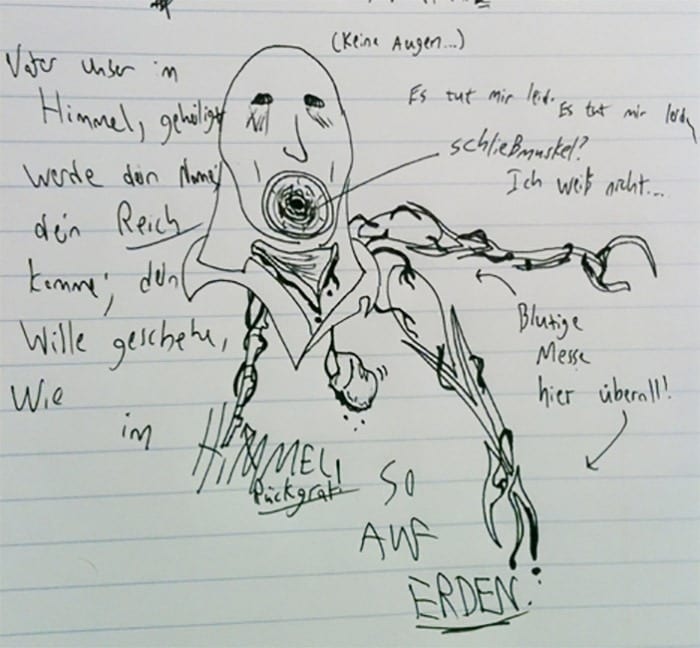 (Keine Augen...)
Vater unser im
Himmel, geheiligt
werde dein Name,
dein Reich
komme, dein
Wille geschehe,
Wie
im
HIMMEL,
Rückgrat
SO
AUF
ERDEN.
Es tut mir leid. Es tut mir leid,
schließmuskel?
Ich weiß nicht...
Blutige
Messe
hier überall!